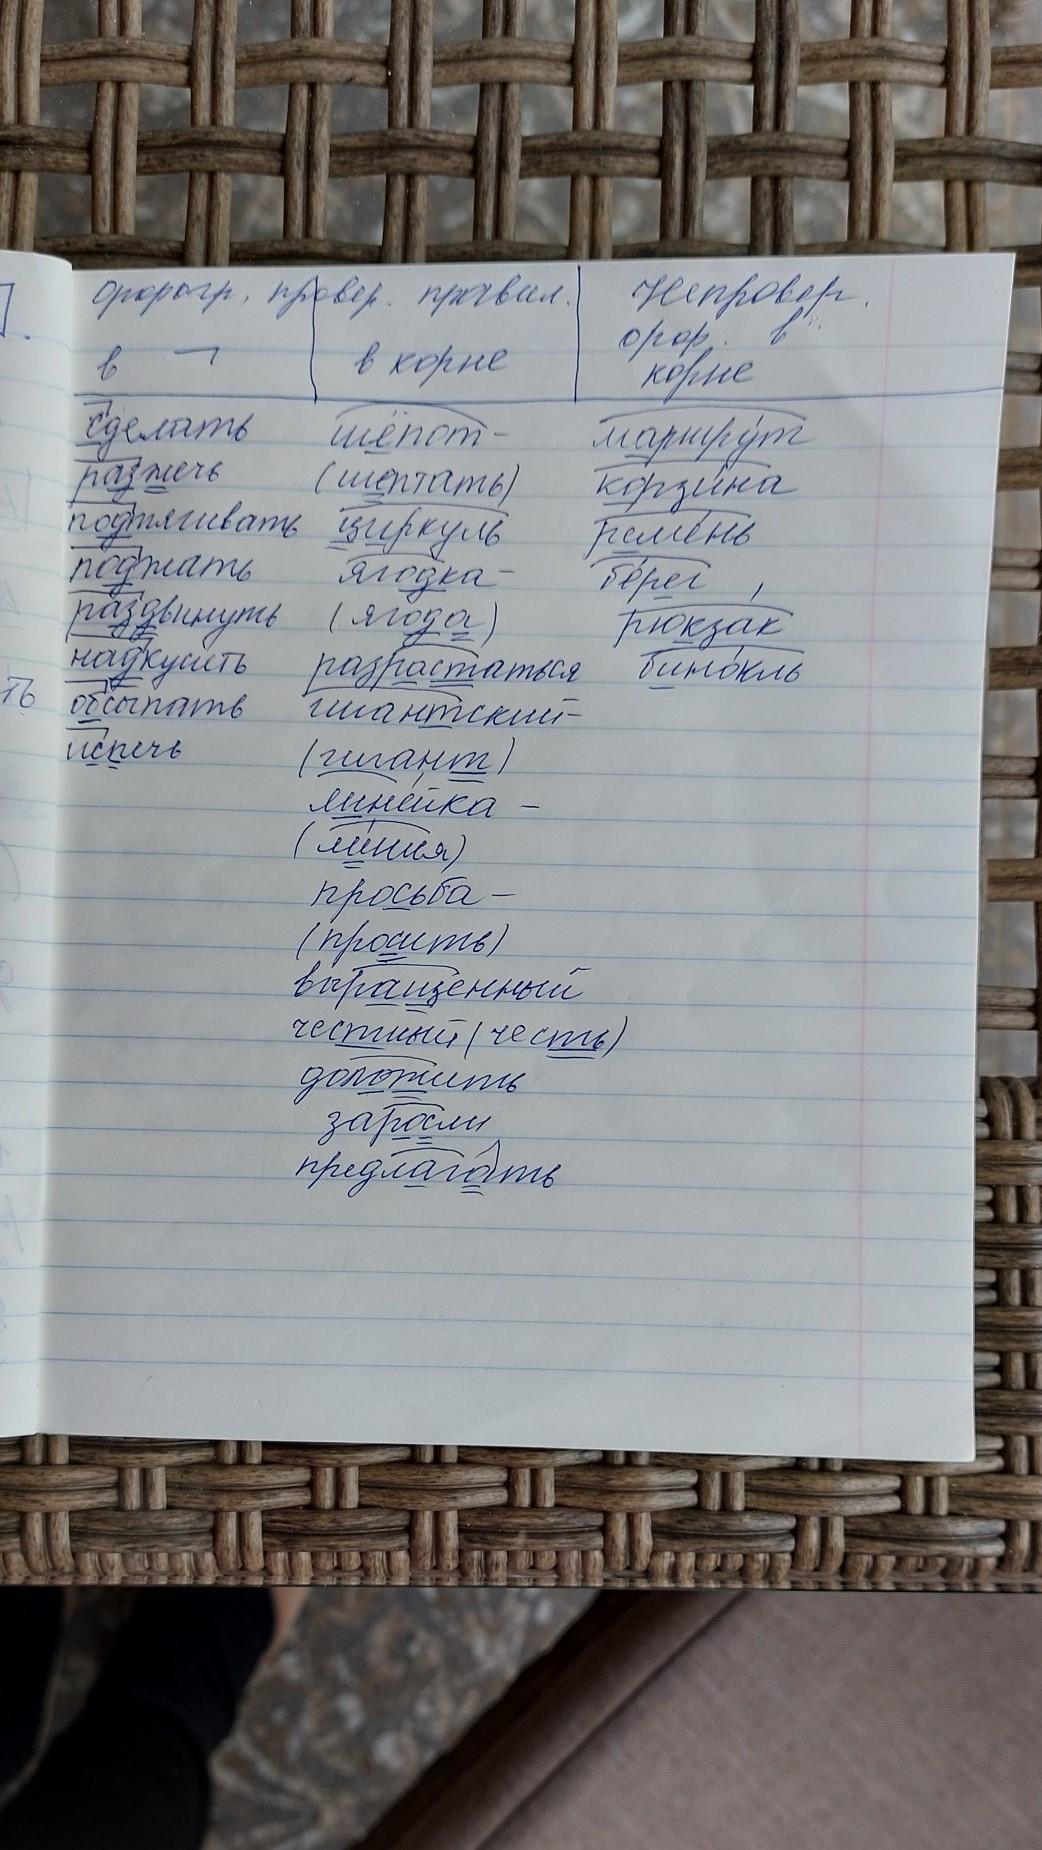 орфогр. провер. правил.
Непровер.
орф. в
корне
в ¬
в корне
сделать
шёпот-
маршрут
разжечь
(шептать)
корзина
подтягивать
циркуль
ремень
поджать
ягодка-
берег
раздвинуть
(ягода)
рюкзак
надкусить
разрастаться
бинокль
ть
обсыпать
гигантский-
испечь
(гигант)
линейка -
(линия)
просьба -
(просить)
выращенный
честный (честь)
доложить
заросли
предлагать